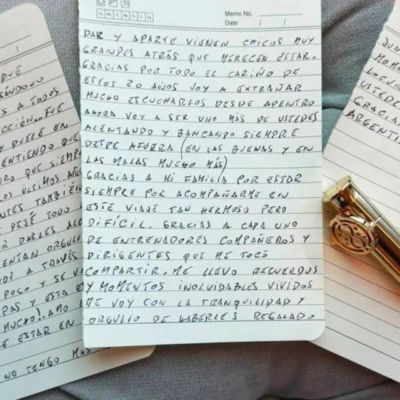 Memo No.
Date / /
DAR Y APARTE VIENEN CHICOS MUY
GRANDES ATRÁS QUE MERECEN ESTAR.
GRACIAS POR TODO EL CARIÑO DE
ESTOS 20 AÑOS VOY A EXTRAÑAR
MUCHO ESCUCHARLOS DESDE ADENTRO
AHORA VOY A SER UNO MÁS DE USTEDES
ALENTANDO Y BANCANDO SIEMPRE
DESDE AFUERA (EN LAS BUENAS Y EN
LAS MALAS MUCHO MÁS)
GRACIAS A MI FAMILIA POR ESTAR
SIEMPRE POR ACOMPAÑARME EN
ESTE VIAJE TAN HERMOSO PERO
DIFÍCIL. GRACIAS A CADA UNO
DE ENTRENADORES COMPAÑEROS Y
DIRIGENTES QUE ME TOCÓ
COMPARTIR. ME LLEVO RECUERDOS
Y MOMENTOS INOLVIDABLES VIVIDOS
ME VOY CON LA TRANQUILIDAD Y
ORGULLO DE HABERLES REGALADO
A TODOS
DUELE EN
ENTIENDO QUE
QUE SIEMPRE
LOS ÚLTIMOS AÑOS
TAMBIÉN
DEJÉ TODO
DARLES ALE
ORGUL
A TRAVÉS
POCO Y SE VA
Y ESTA
MUCHO!
ESTAR EN
NO TENGO MÁS
USTEDE
GRACIA
ARGENTI